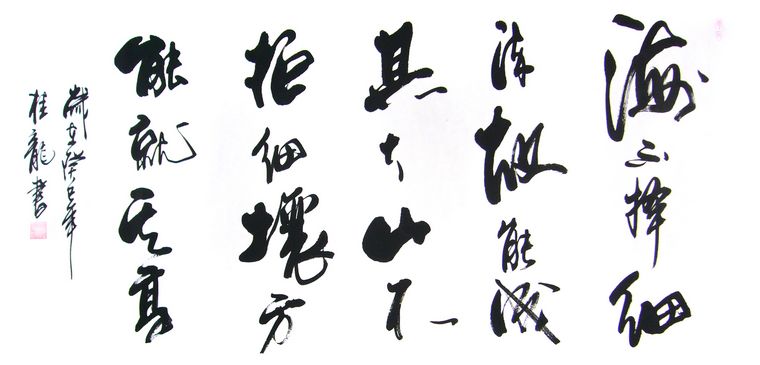 海不择细
流故能成
其大山不
拒细壤方
能就其高
歲在癸巳年
桂龍書